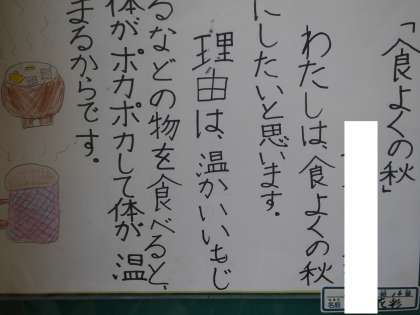 「食よくの秋」
わたしは、食よくの秋
にしたいと思います。
理由は、温かいいもじ
るなどの物を食べると、
体が、ポカポカして体が、温
まるからです。
名前